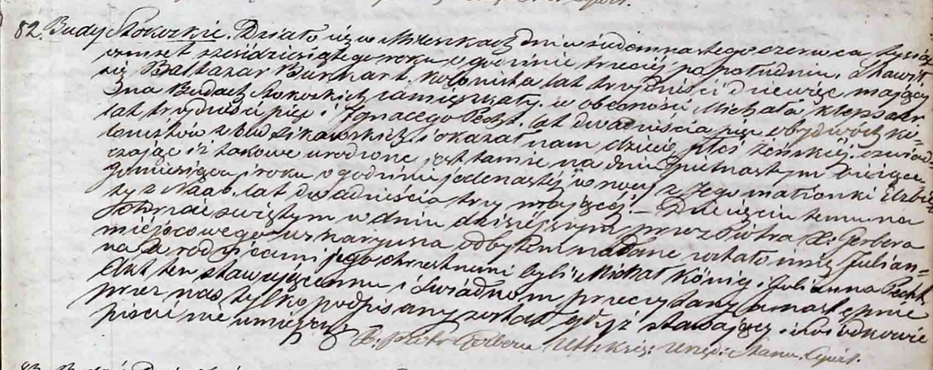 82. Budy Stoko​rskie. Działo się w Mreszkach dnia siódmnastego czerwca tysiąc
ośmset sześdziesiątego roku o godzinie trzeciéj po południu. Stawił
się Baltazar Burchart, kolonista lat trzydzieści dziewięć mający
na Budach zamięszkały w obecności Michała
lat trzydzieści pięć i Ignacego Pecht, lat dwadzieścia pięć obydwóch ko-
lonistów z i okazał nam dziecię płci żeńskiéj, oświad-
czając iż takowe urodzone jest tamże na dniu piętnastym bieżące-
go miesiąca i roku o godzinie jedenastéj w nocy z jego małżonki Elżbie-
ty z lat dwadzieścia trzy mającéj.— Dziecięciu temu na
Chrzcie świętym w dniu dzisiéjszym przez Piotra X. Gerbera
miejscowego wikaryusza odbytym nadane zostało imię Julian-
na a rodzicami jego chrzestnemi byli Michał König i Julianna Pecht
Akt ten stawającemu i świadkom przeczytany a następnie
przez nas tylko podpisany został gdyż stawający i świadkowie
pisać nie umieją
X. Piotr Gerber Utrz: Stanu Cywil.
82.